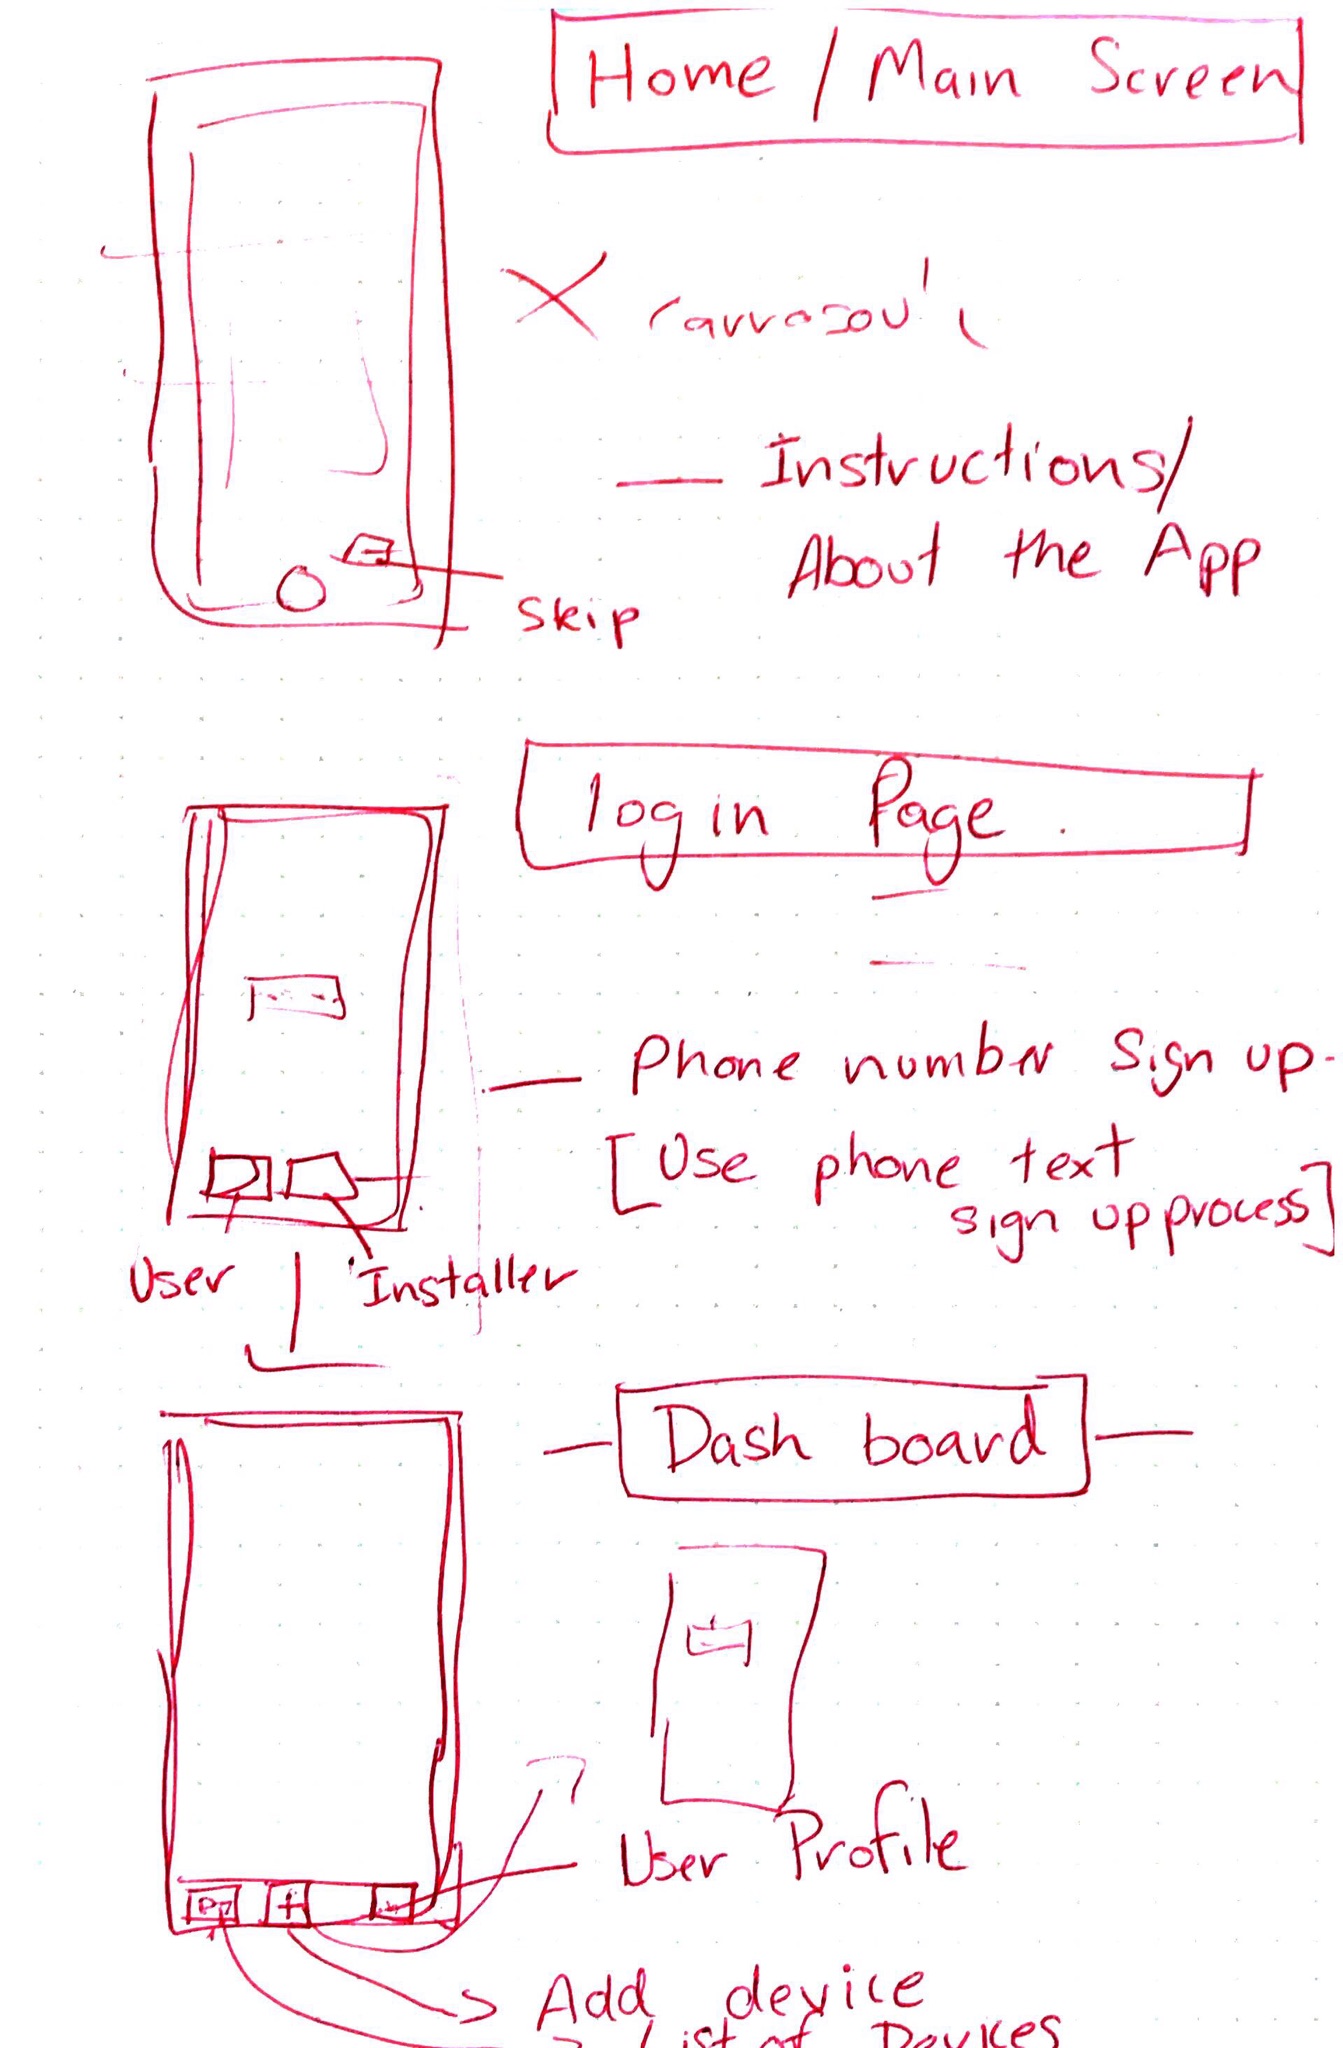 Home / Main Screen
X
Instructions/
About the App
Skip
login Page.
Phone number Sign up.
[Use phone text
sign up process]
User
Installer
Dash board
User Profile
Add device
List of Devices